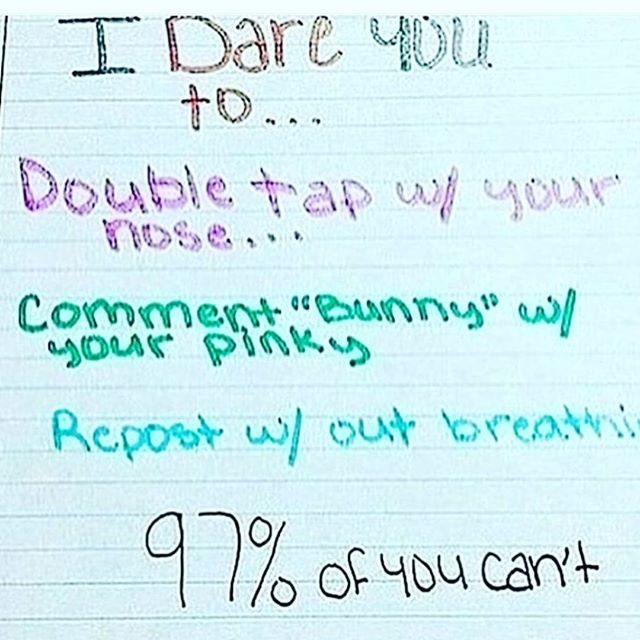 I Dare you
to...
Double tap w/ your
nose...
Comment "Bunny" w/
your pinky
Repost w/ out breathi
97% of you can't